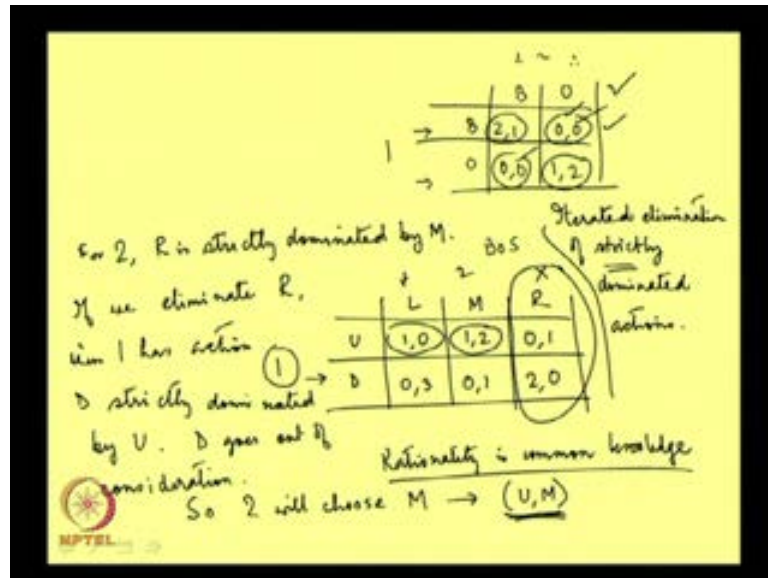 B O
1 → B 2,1 0,0
→ O 0,0 1,2
BOS
Iterated elimination
of strictly
dominated
actions.
For 2, R is strictly dominated by M.
If we eliminate R,
then 1 has action
D strictly dominated
by U. D goes out of
consideration.
2
L M R
U 1,0 1,2 0,1
1 → D 0,3 0,1 2,0
Rationality is common knowledge
So 2 will choose M → (U,M)
NPTEL